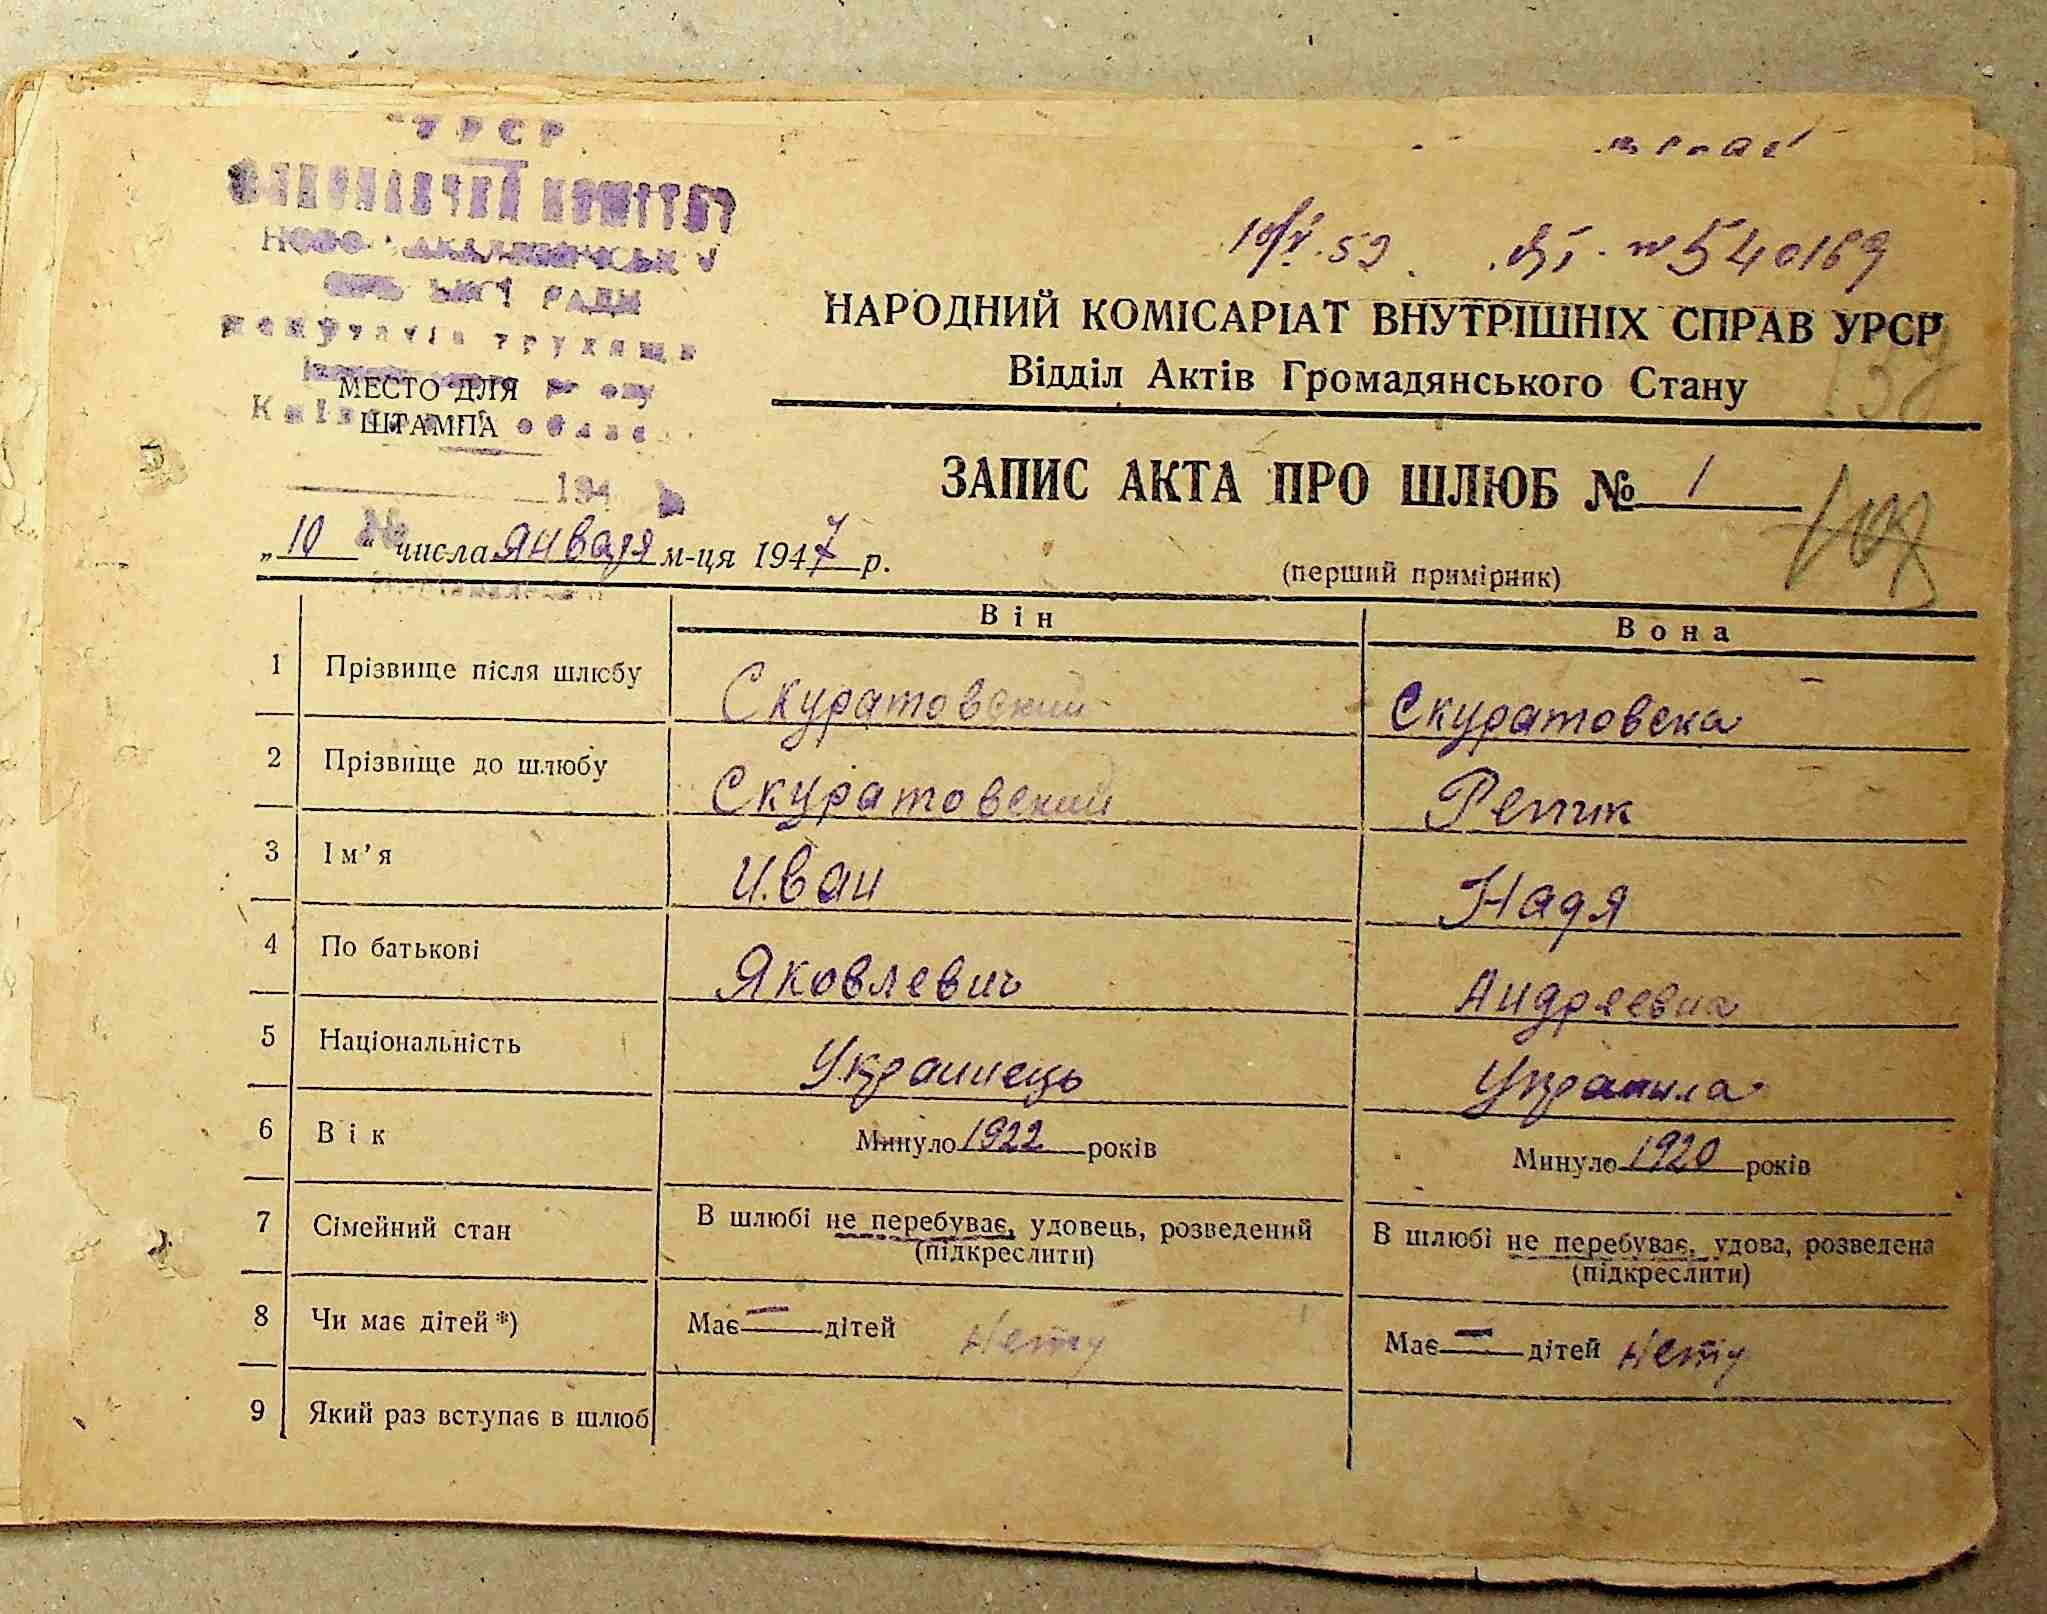 УРСР
КОМІТЕТ
НОВО
РАДИ
депутатів трудящих
МЕСТО ДЛЯ
ШТАМПА
194
10/V.59. № 540189
НАРОДНИЙ КОМІСАРІАТ ВНУТРІШНІХ СПРАВ УРСР
Відділ Актів Громадянського Стану
138
ЗАПИС АКТА ПРО ШЛЮБ № 1
„10“ числа января м-ця 1947 р.
(перший примірник)
Він Вона
1 Прізвище після шлюбу Скуратовский Скуратовска
2 Прізвище до шлюбу Скуратовский Репик
3 Ім’я Иван Надя
4 По батькові Яковлевич
5 Національність Украинець
6 Вік Минуло 1922 років Минуло 1920 років
7 Сімейний стан В шлюбі не перебуває, удовець, розведений В шлюбі не перебуває, удова, розведена
(підкреслити) (підкреслити)
8 Чи має дітей *) Має — дітей Нету Має — дітей Нету
9 Який раз вступає в шлюб